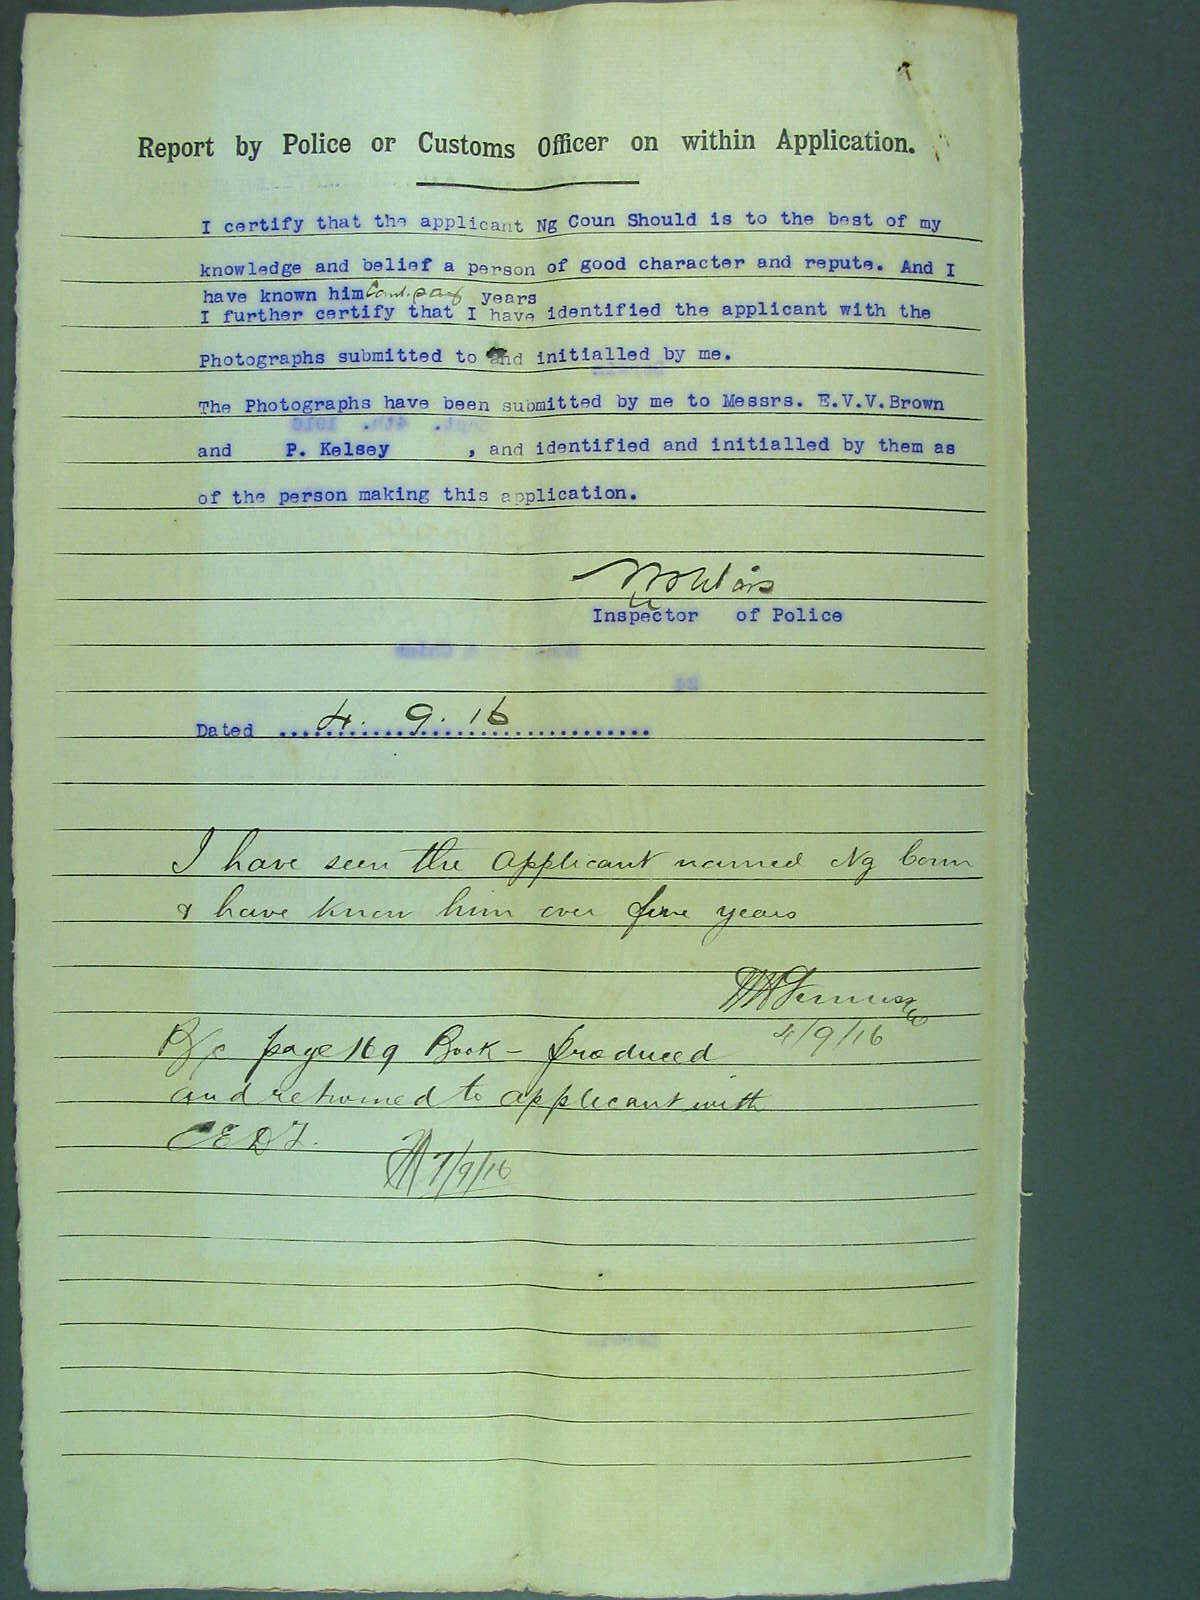 Report by Police or Customs Officer on within Application.
I certify that the applicant Ng Coun Should is to the best of my
knowledge and belief a person of good character and repute. And I
have known him Cant say years
I further certify that I have identified the applicant with the
Photographs submitted to and initialled by me.
The Photographs have been submitted by me to Messrs. E.V.V.Brown
and P. Kelsey , and identified and initialled by them as
of the person making this application.
Inspector of Police
Dated 4. 9. 16
I have seen the applicant named Ng Coun
& have know him over five years
4/9/16
page 169 Book - produced
and returned to applicant with
CEDT.
7/9/16